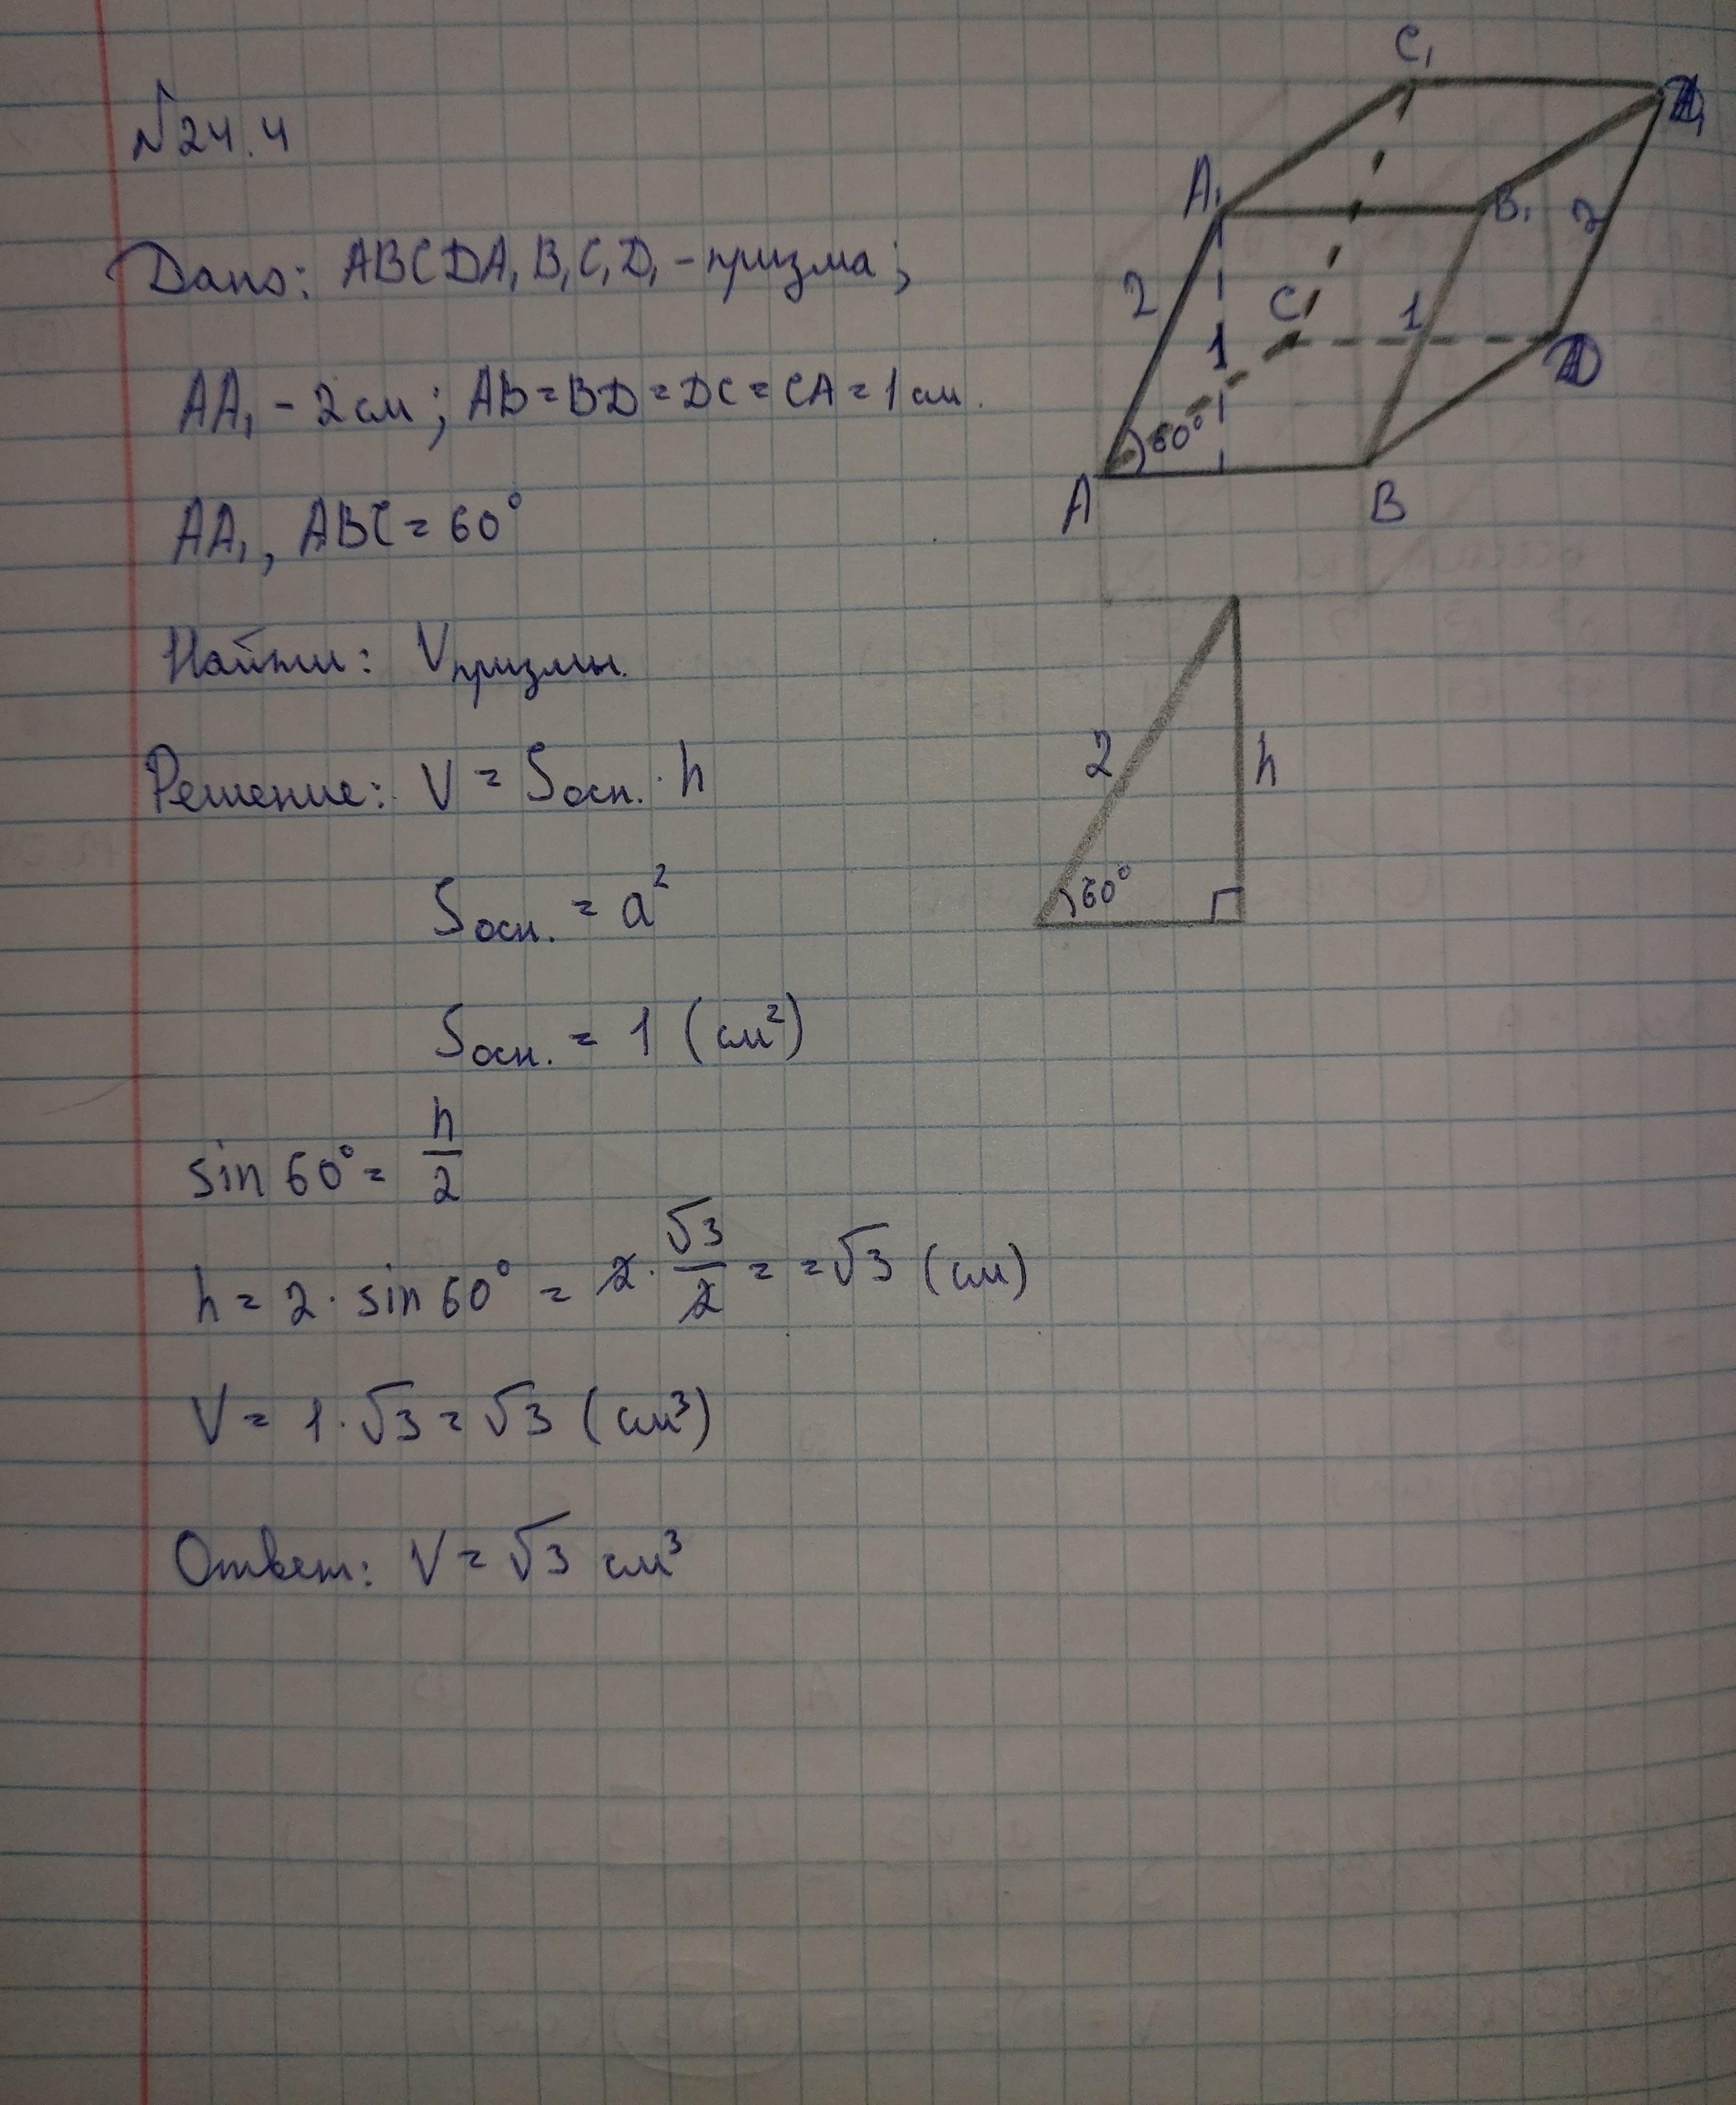 №24.4
Дано: ABCDA₁B₁C₁D₁ - призма;
AA₁ - 2 см; AB = BD = DC = CA = 1 см.
AA₁, ABC = 60°
Найти: Vпризмы.
Решение: V = Sосн. · h
Sосн. = a²
Sосн. = 1 (см²)
sin 60° = h/2
h = 2 · sin 60° = 2 · √3/2 = = √3 (см)
V = 1 · √3 = √3 (см³)
Ответ: V = √3 см³
C₁
D₁
A₁
B₁
2
2
C
1
1
D
60°
A
B
2
h
60°